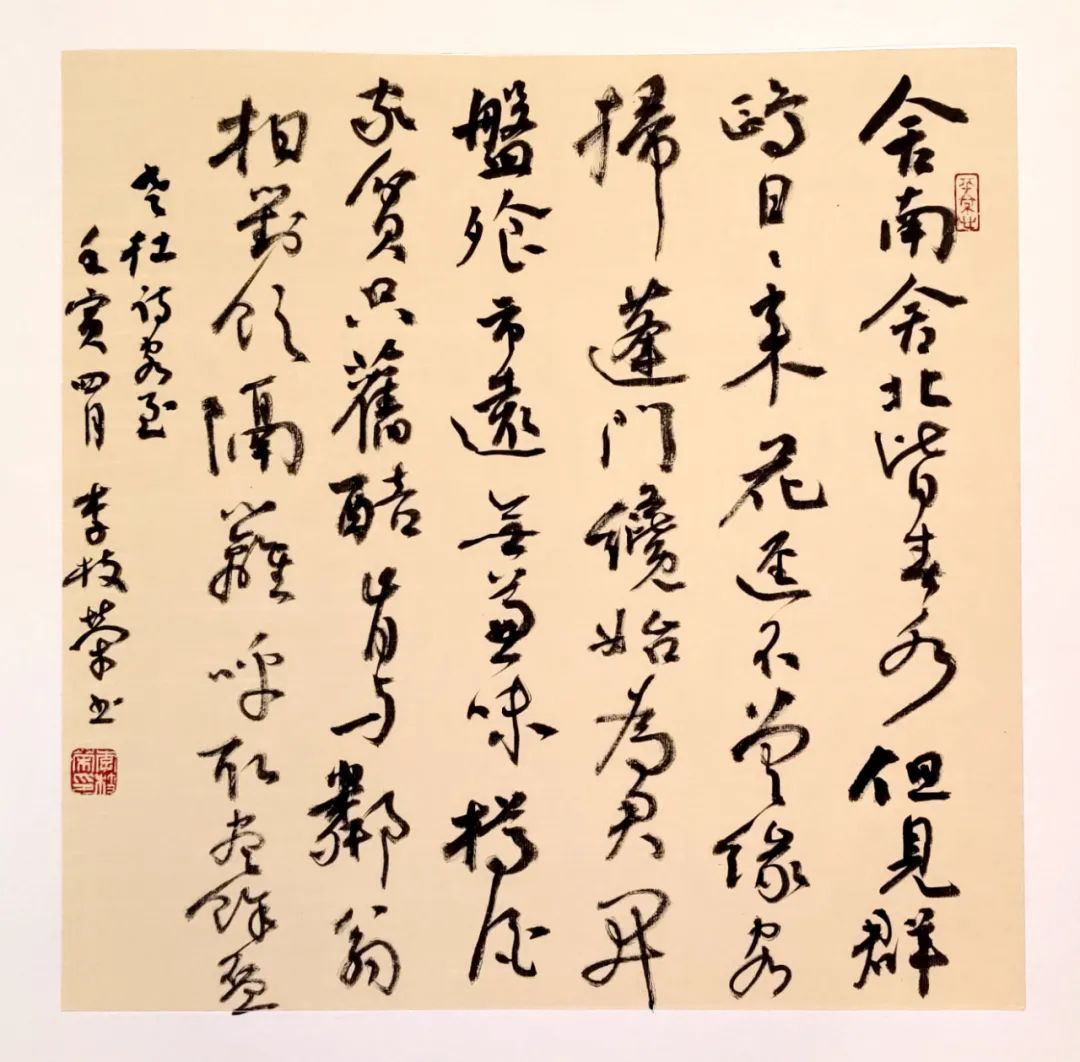 舍南舍北皆春水但見群
鷗日〻来花逕不曾緣客
掃蓬門纔始為君開
盤飧市遠無兼味樽酒
家貧只舊醅肯与鄰翁
相對飲隔籬呼取盡餘盃
老杜诗客至
壬寅四月 李枝荣书
李枝榮印